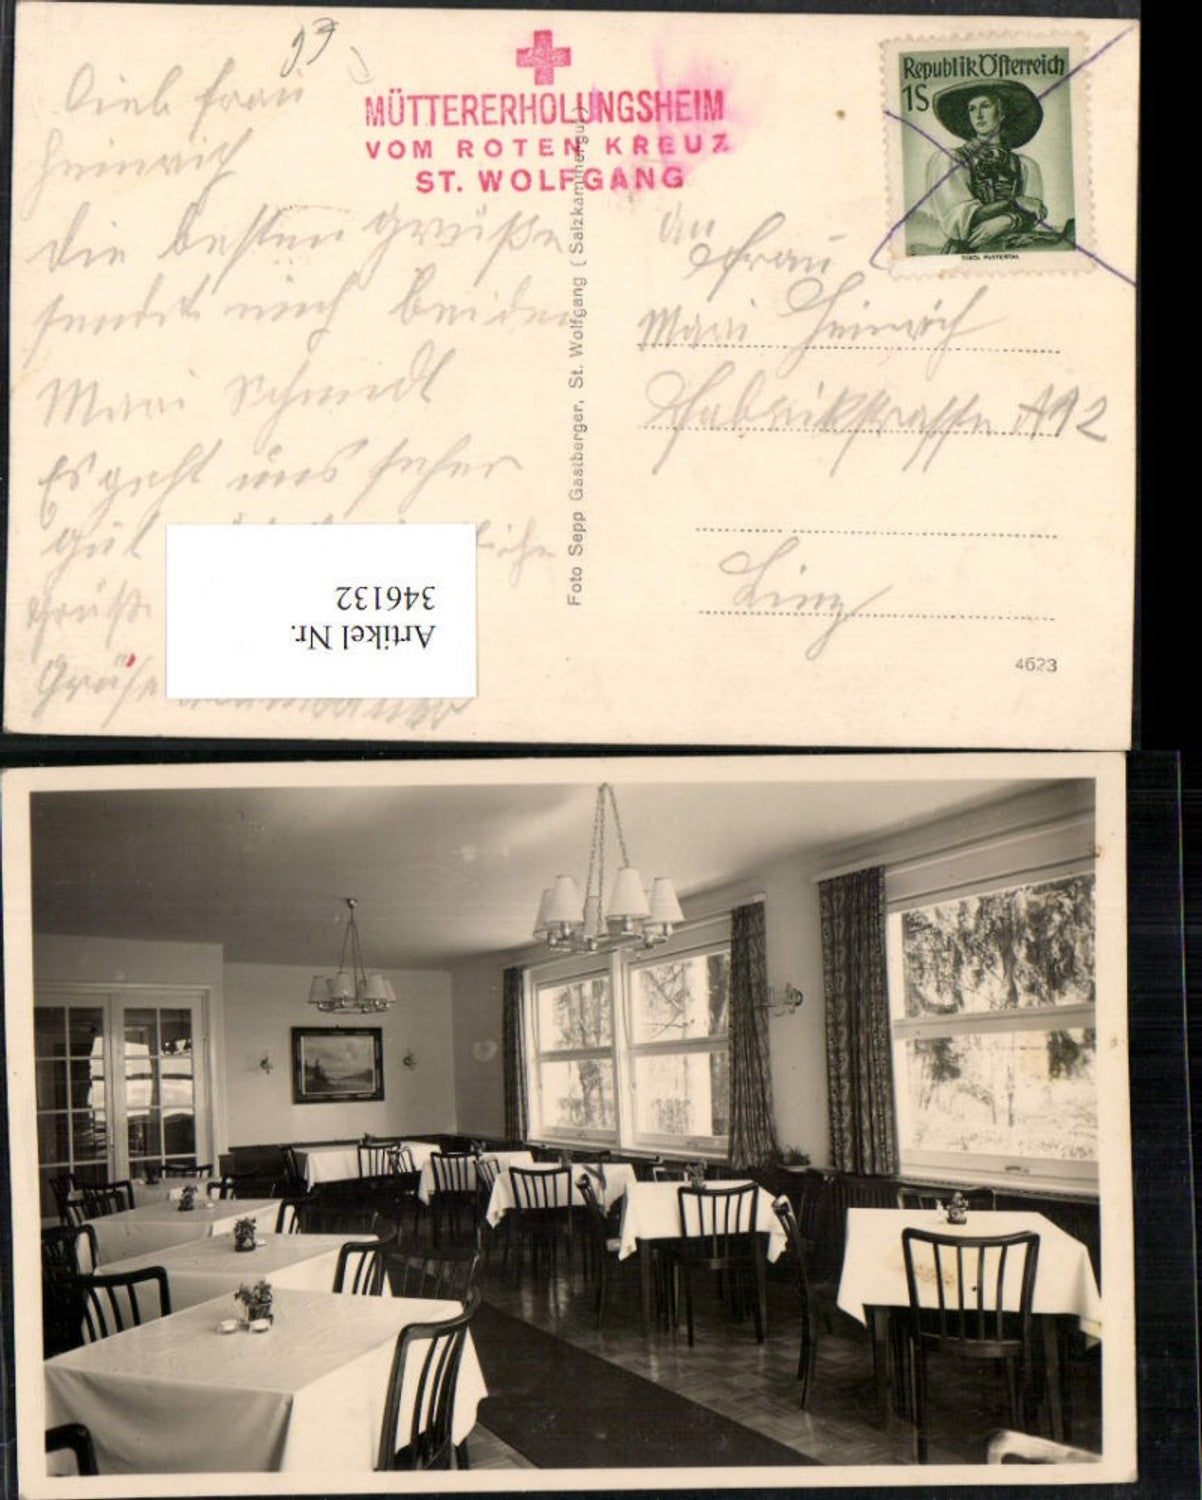 53
Lieb Frau
Heinrich
Die besten Grüße
sendet euch beiden
Mari Schmidt
Es geht uns sehr
gut
Grüße
Grüße
MÜTTERERHOLUNGSHEIM
VOM ROTEN KREUZ
ST. WOLFGANG
Foto Sepp Gastberger, St. Wolfgang (Salzkammergut)
Republik Österreich
1S
TIROL PUSTERTAL
An
Frau
Mari Heinrich
Fabrikstrasse A12
Linz
4623
Artikel Nr.
346132